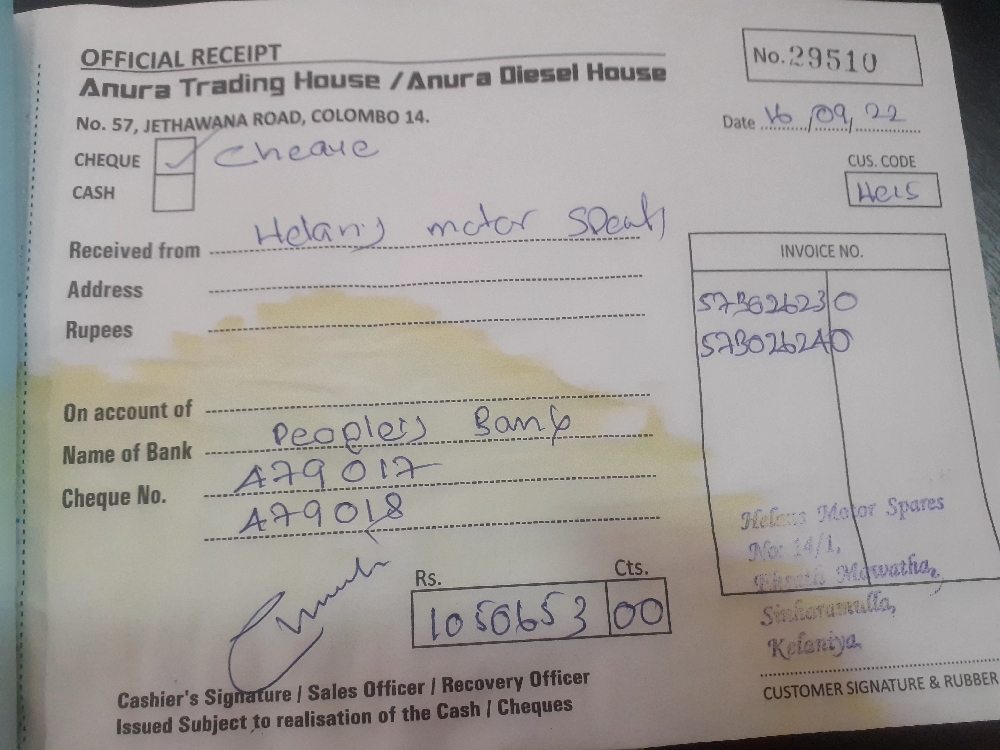 OFFICIAL RECEIPT
Anura Trading House / Anura Diesel House
No. 57, JETHAWANA ROAD, COLOMBO 14.
No. 29510
Date 16/09/22
CHEQUE ✓ Cheque
CASH
CUS. CODE
HELS
Received from Helans motor
Address
Rupees
INVOICE NO.
573026230
573026240
On account of
Name of Bank People's Bank
Cheque No. 479017
479018
Rs. Cts.
1050653 00
Helans Motor Spares
No: 14/1,
Mawatha,
Sinharamulla,
Kelaniya.
Cashier's Signature / Sales Officer / Recovery Officer
Issued Subject to realisation of the Cash / Cheques
CUSTOMER SIGNATURE & RUBBER